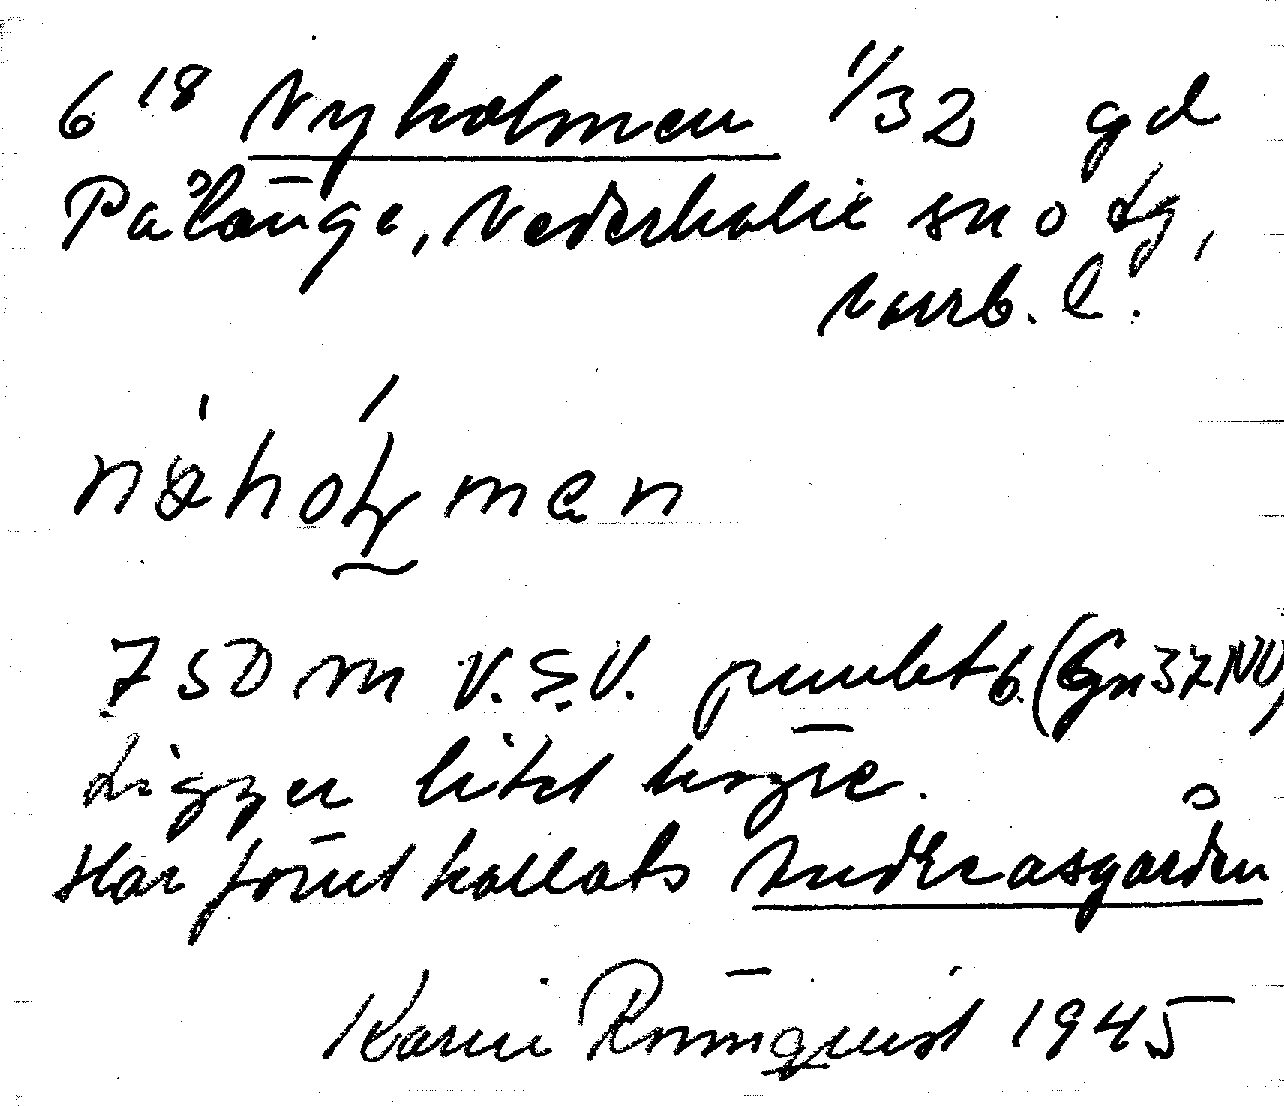 6 18 Nyholmen 1/32 gd
Pålänge, Nederkalix sn o tg,
Norrb. l.
750 m V.S.V. punkt 6. (Gn 37 NV)
Ligger litet högre.
Har förut kallats Andreasgården
Karin Rönnquist 1945